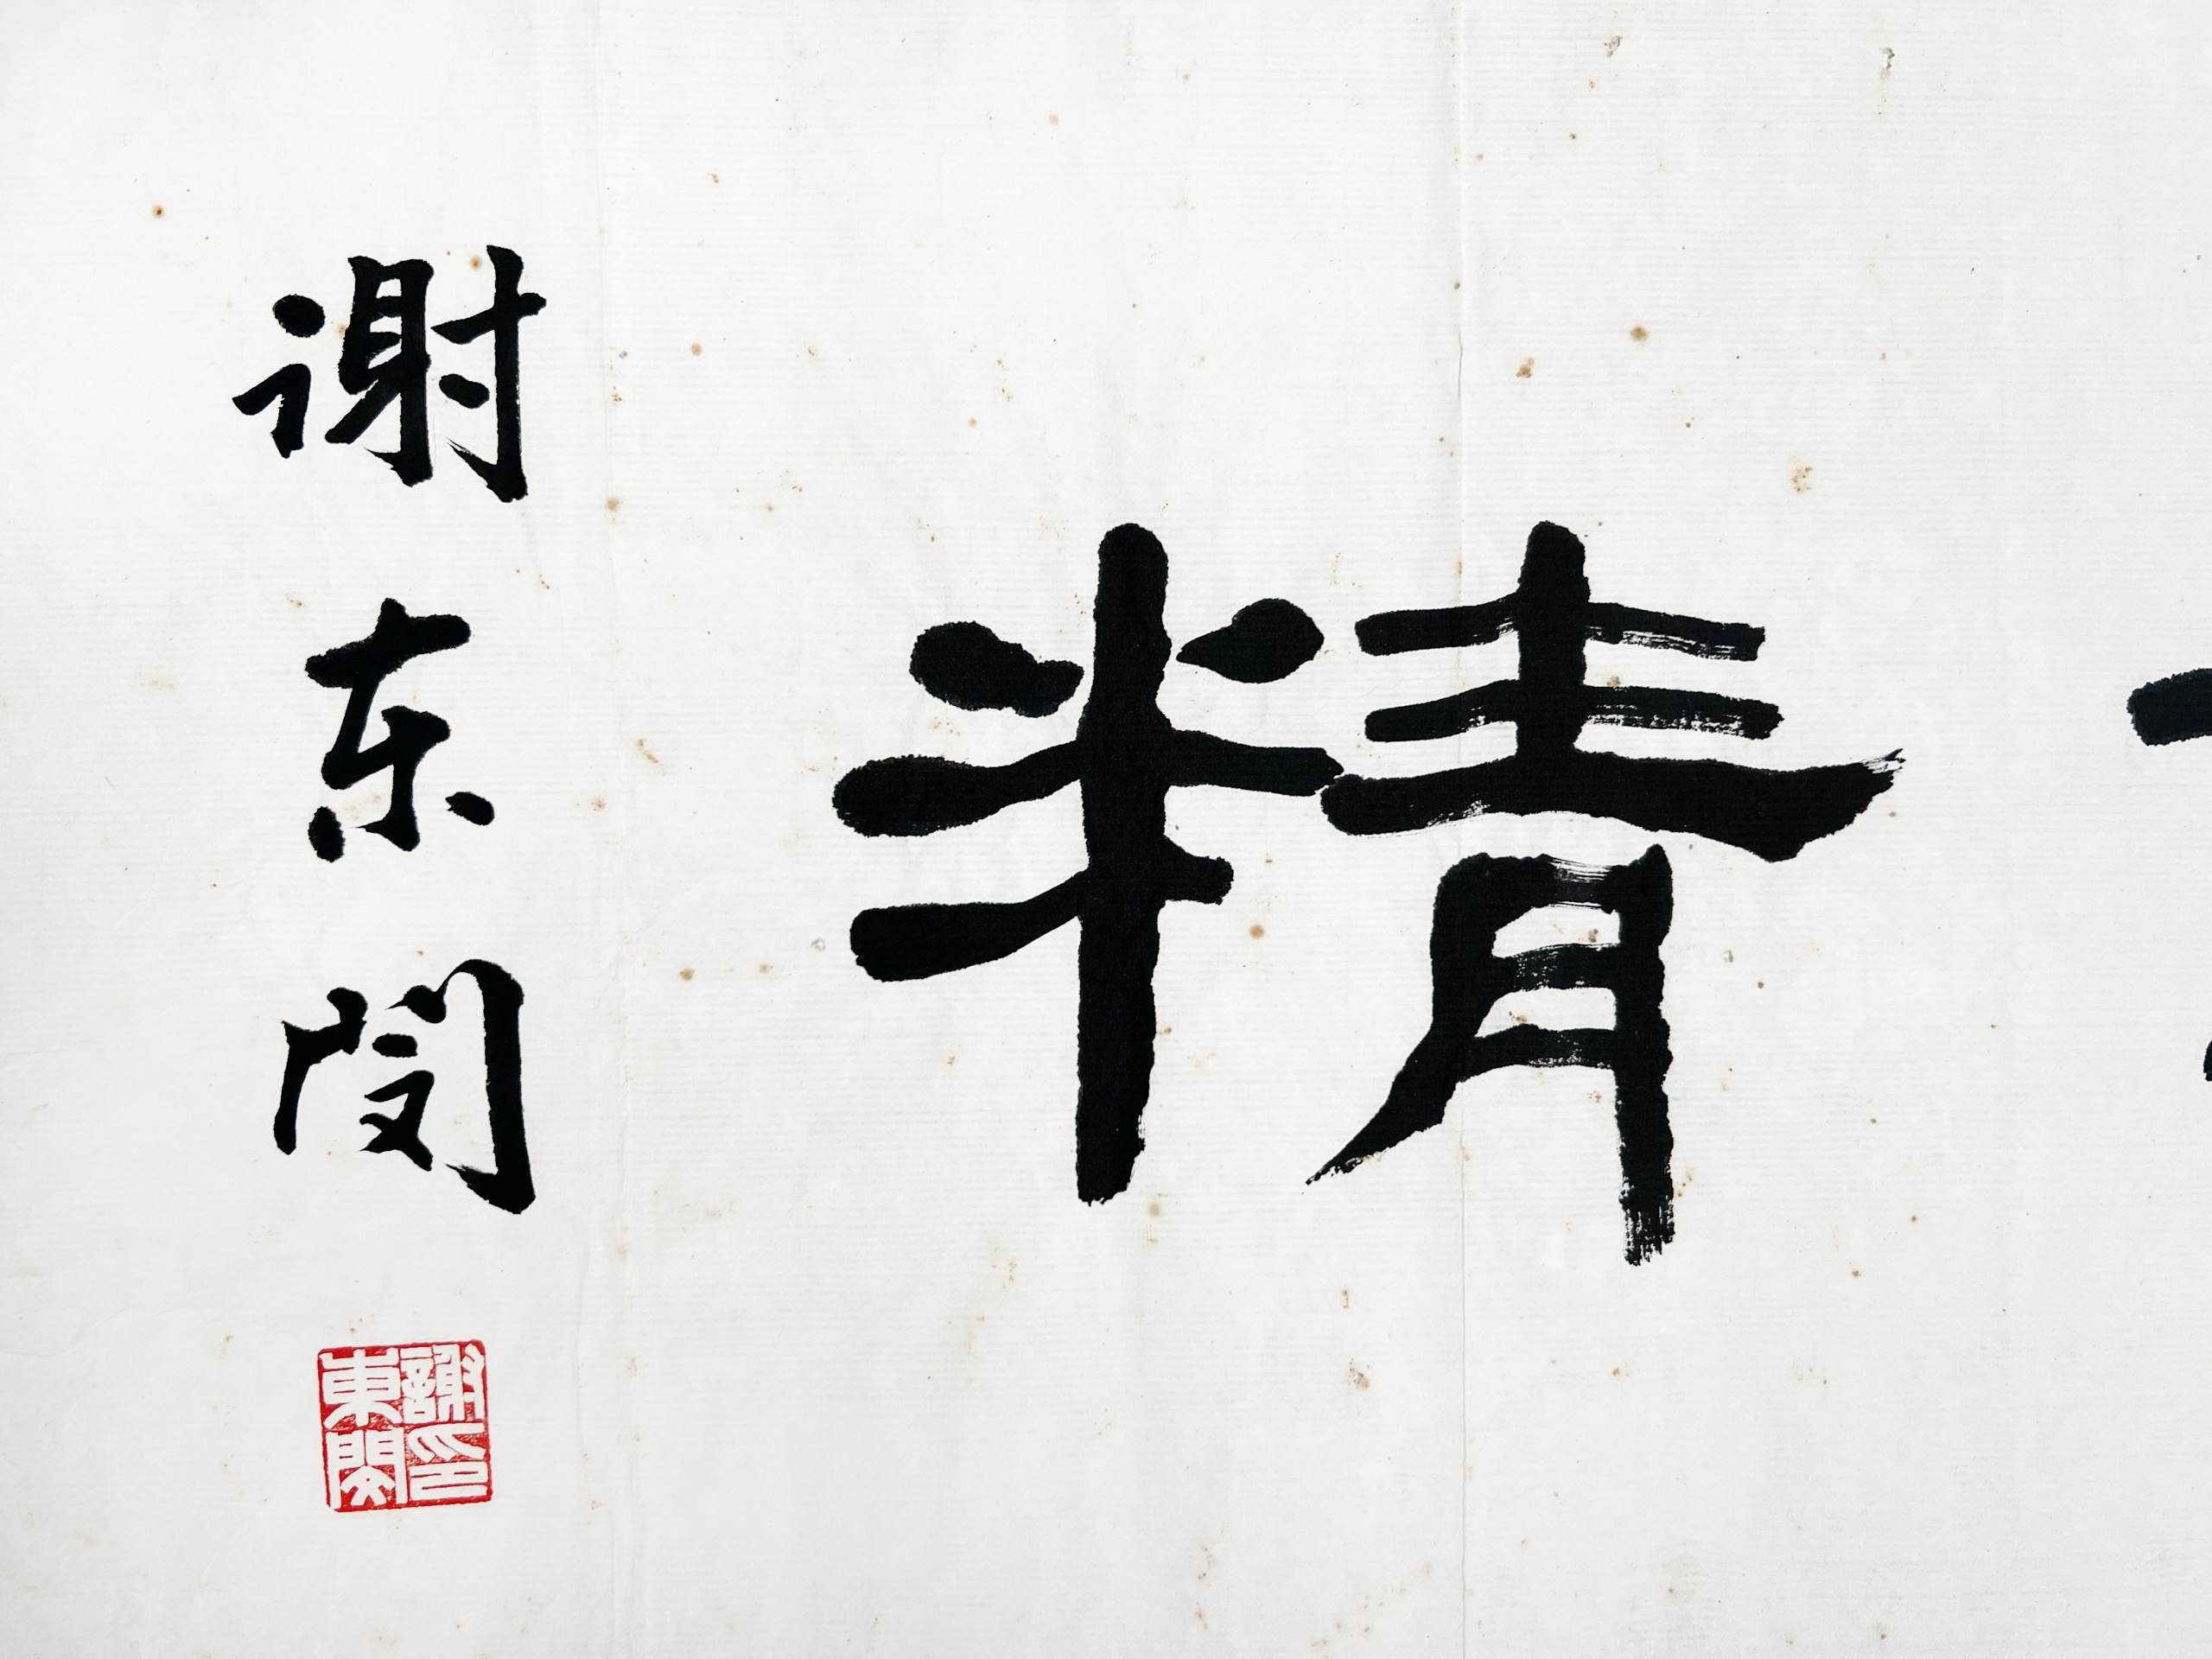 精
谢东闵
謝印
東閔